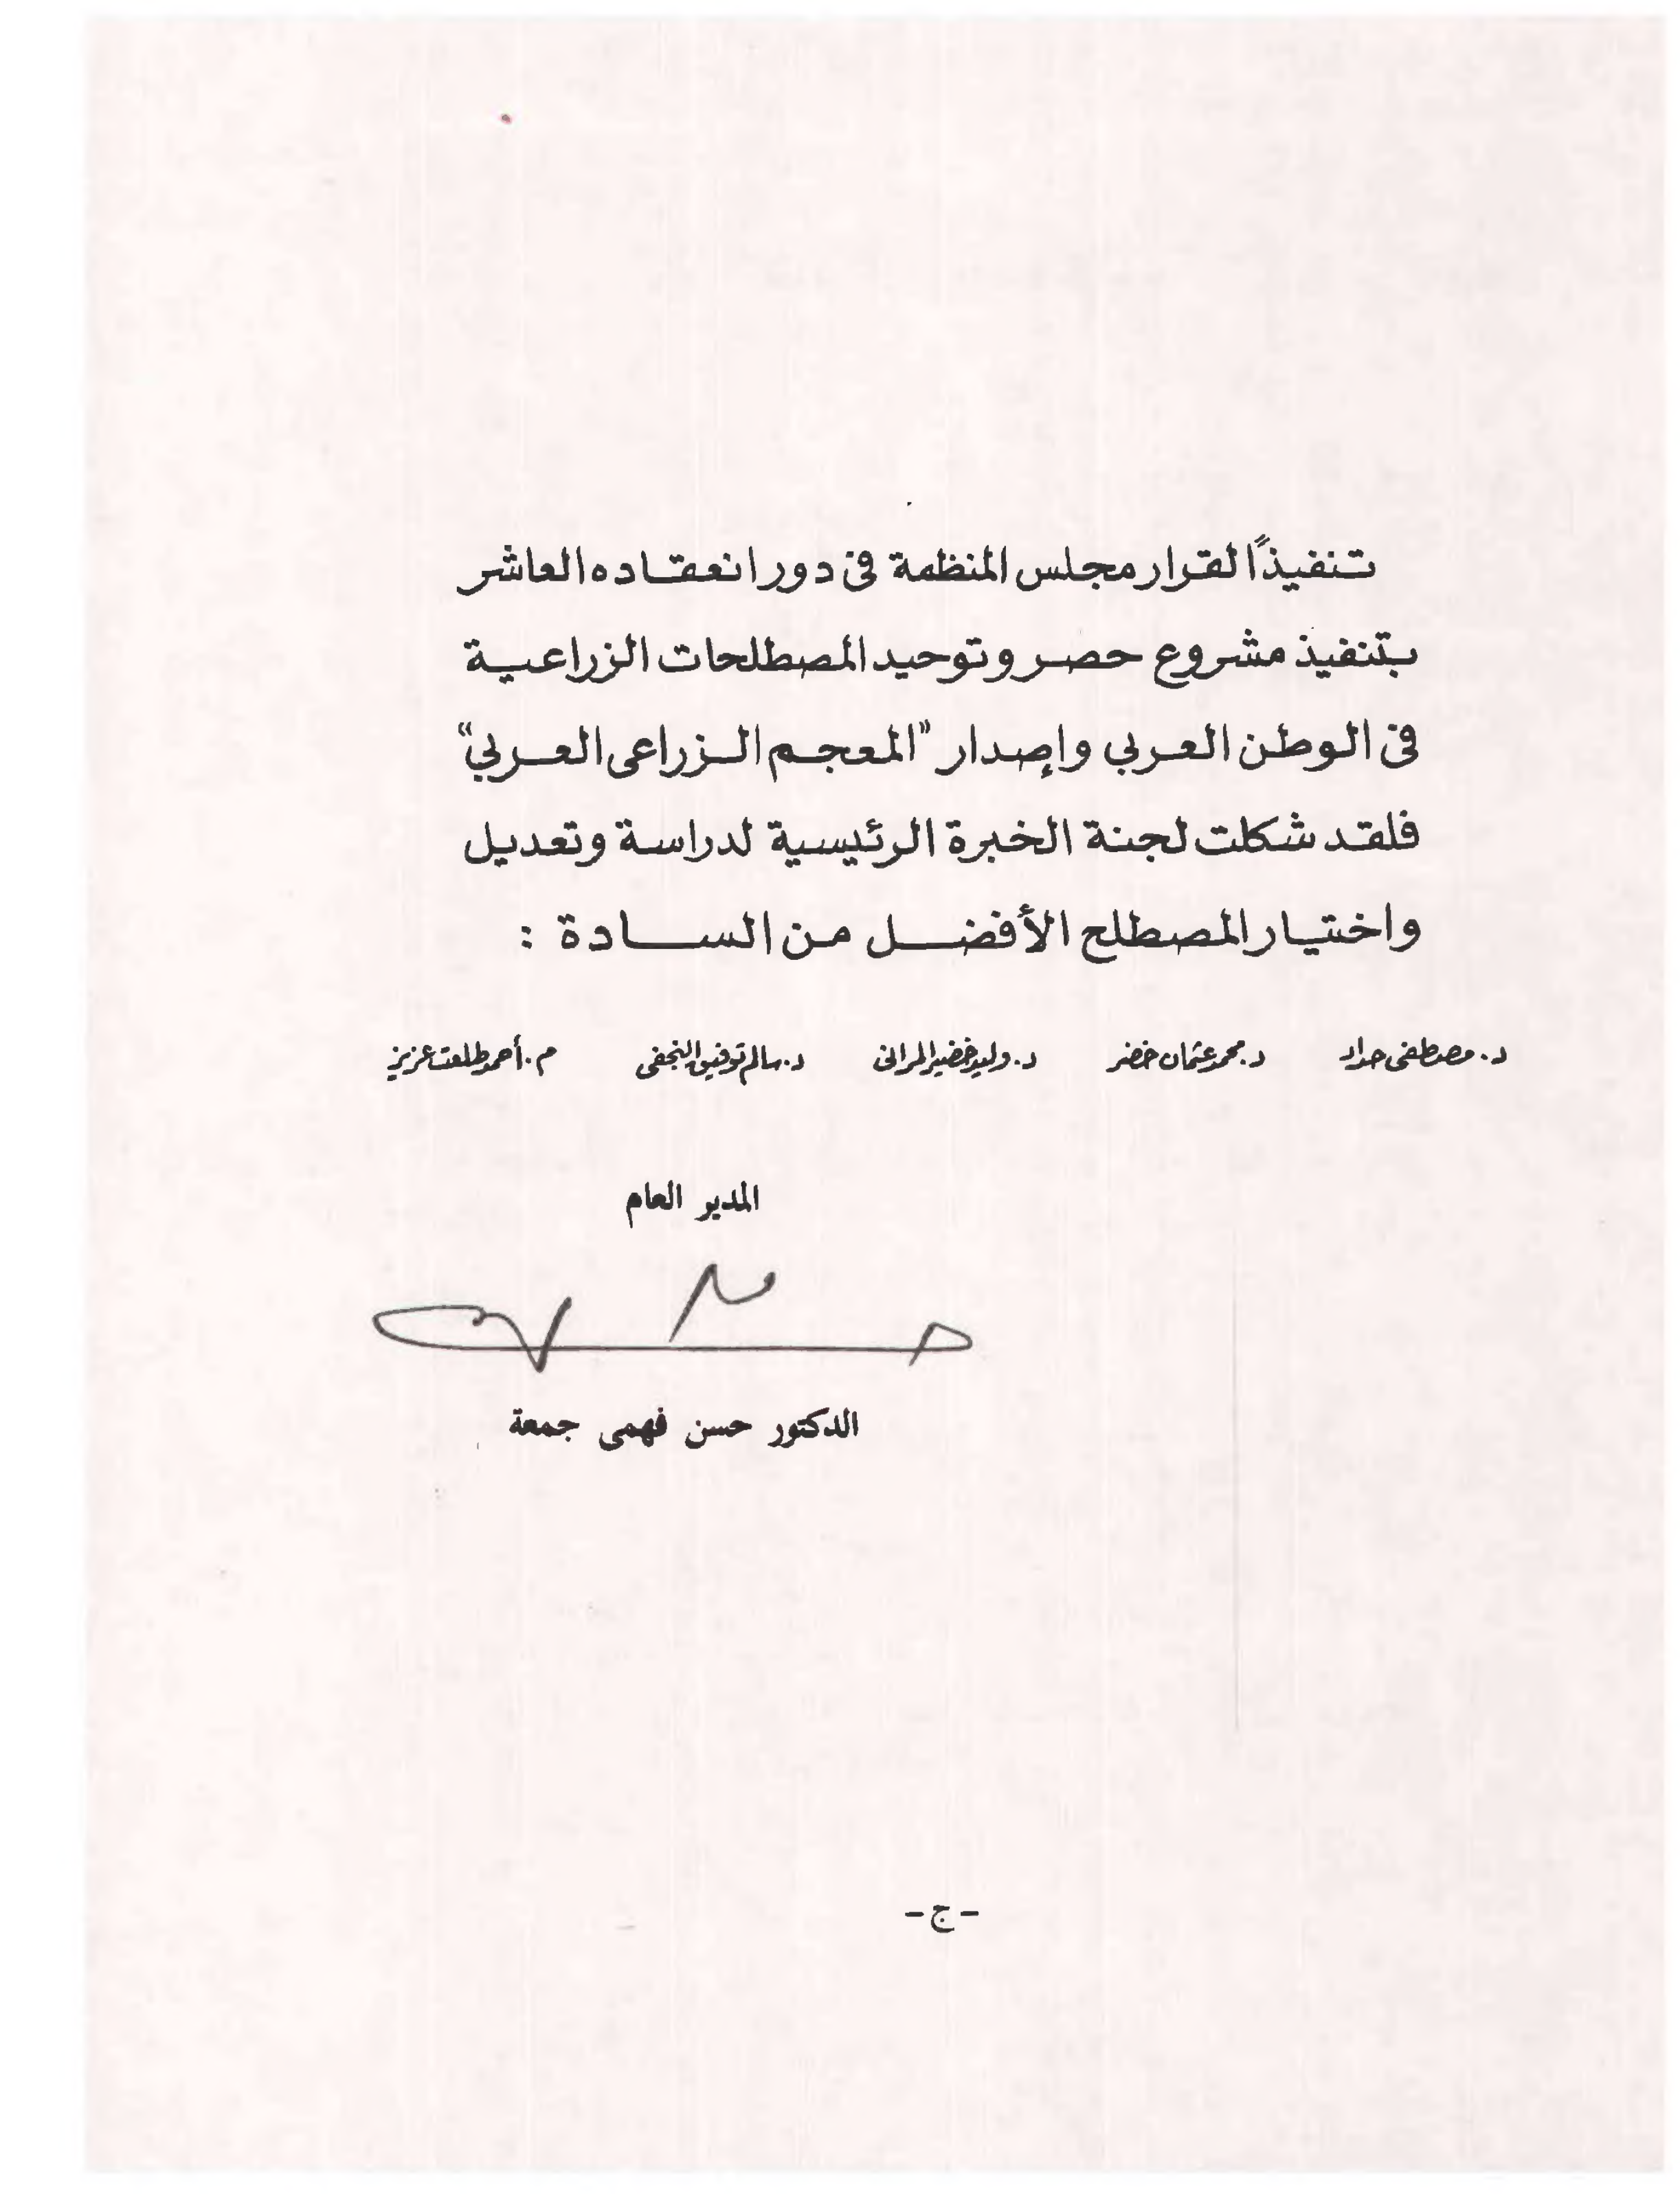 تنفيذًا لقرار مجلس المنظمة فى دور انعقاده العاشر
بتنفيذ مشروع حصر وتوحيد المصطلحات الزراعية
فى الوطن العربي وإصدار "المعجم الزراعى العربي"
فلقد شكلت لجنة الخبرة الرئيسية لدراسة وتعديل
واختيار المصطلح الأفضل من السادة :
د. مصطفى حداد د. محمد عثمان خضر د. وليد خضير المرانى د. سالم توفيق النجفى م. أحمد طلعت عزيز
المدير العام
الدكتور حسن فهمى جمعة
- ج -